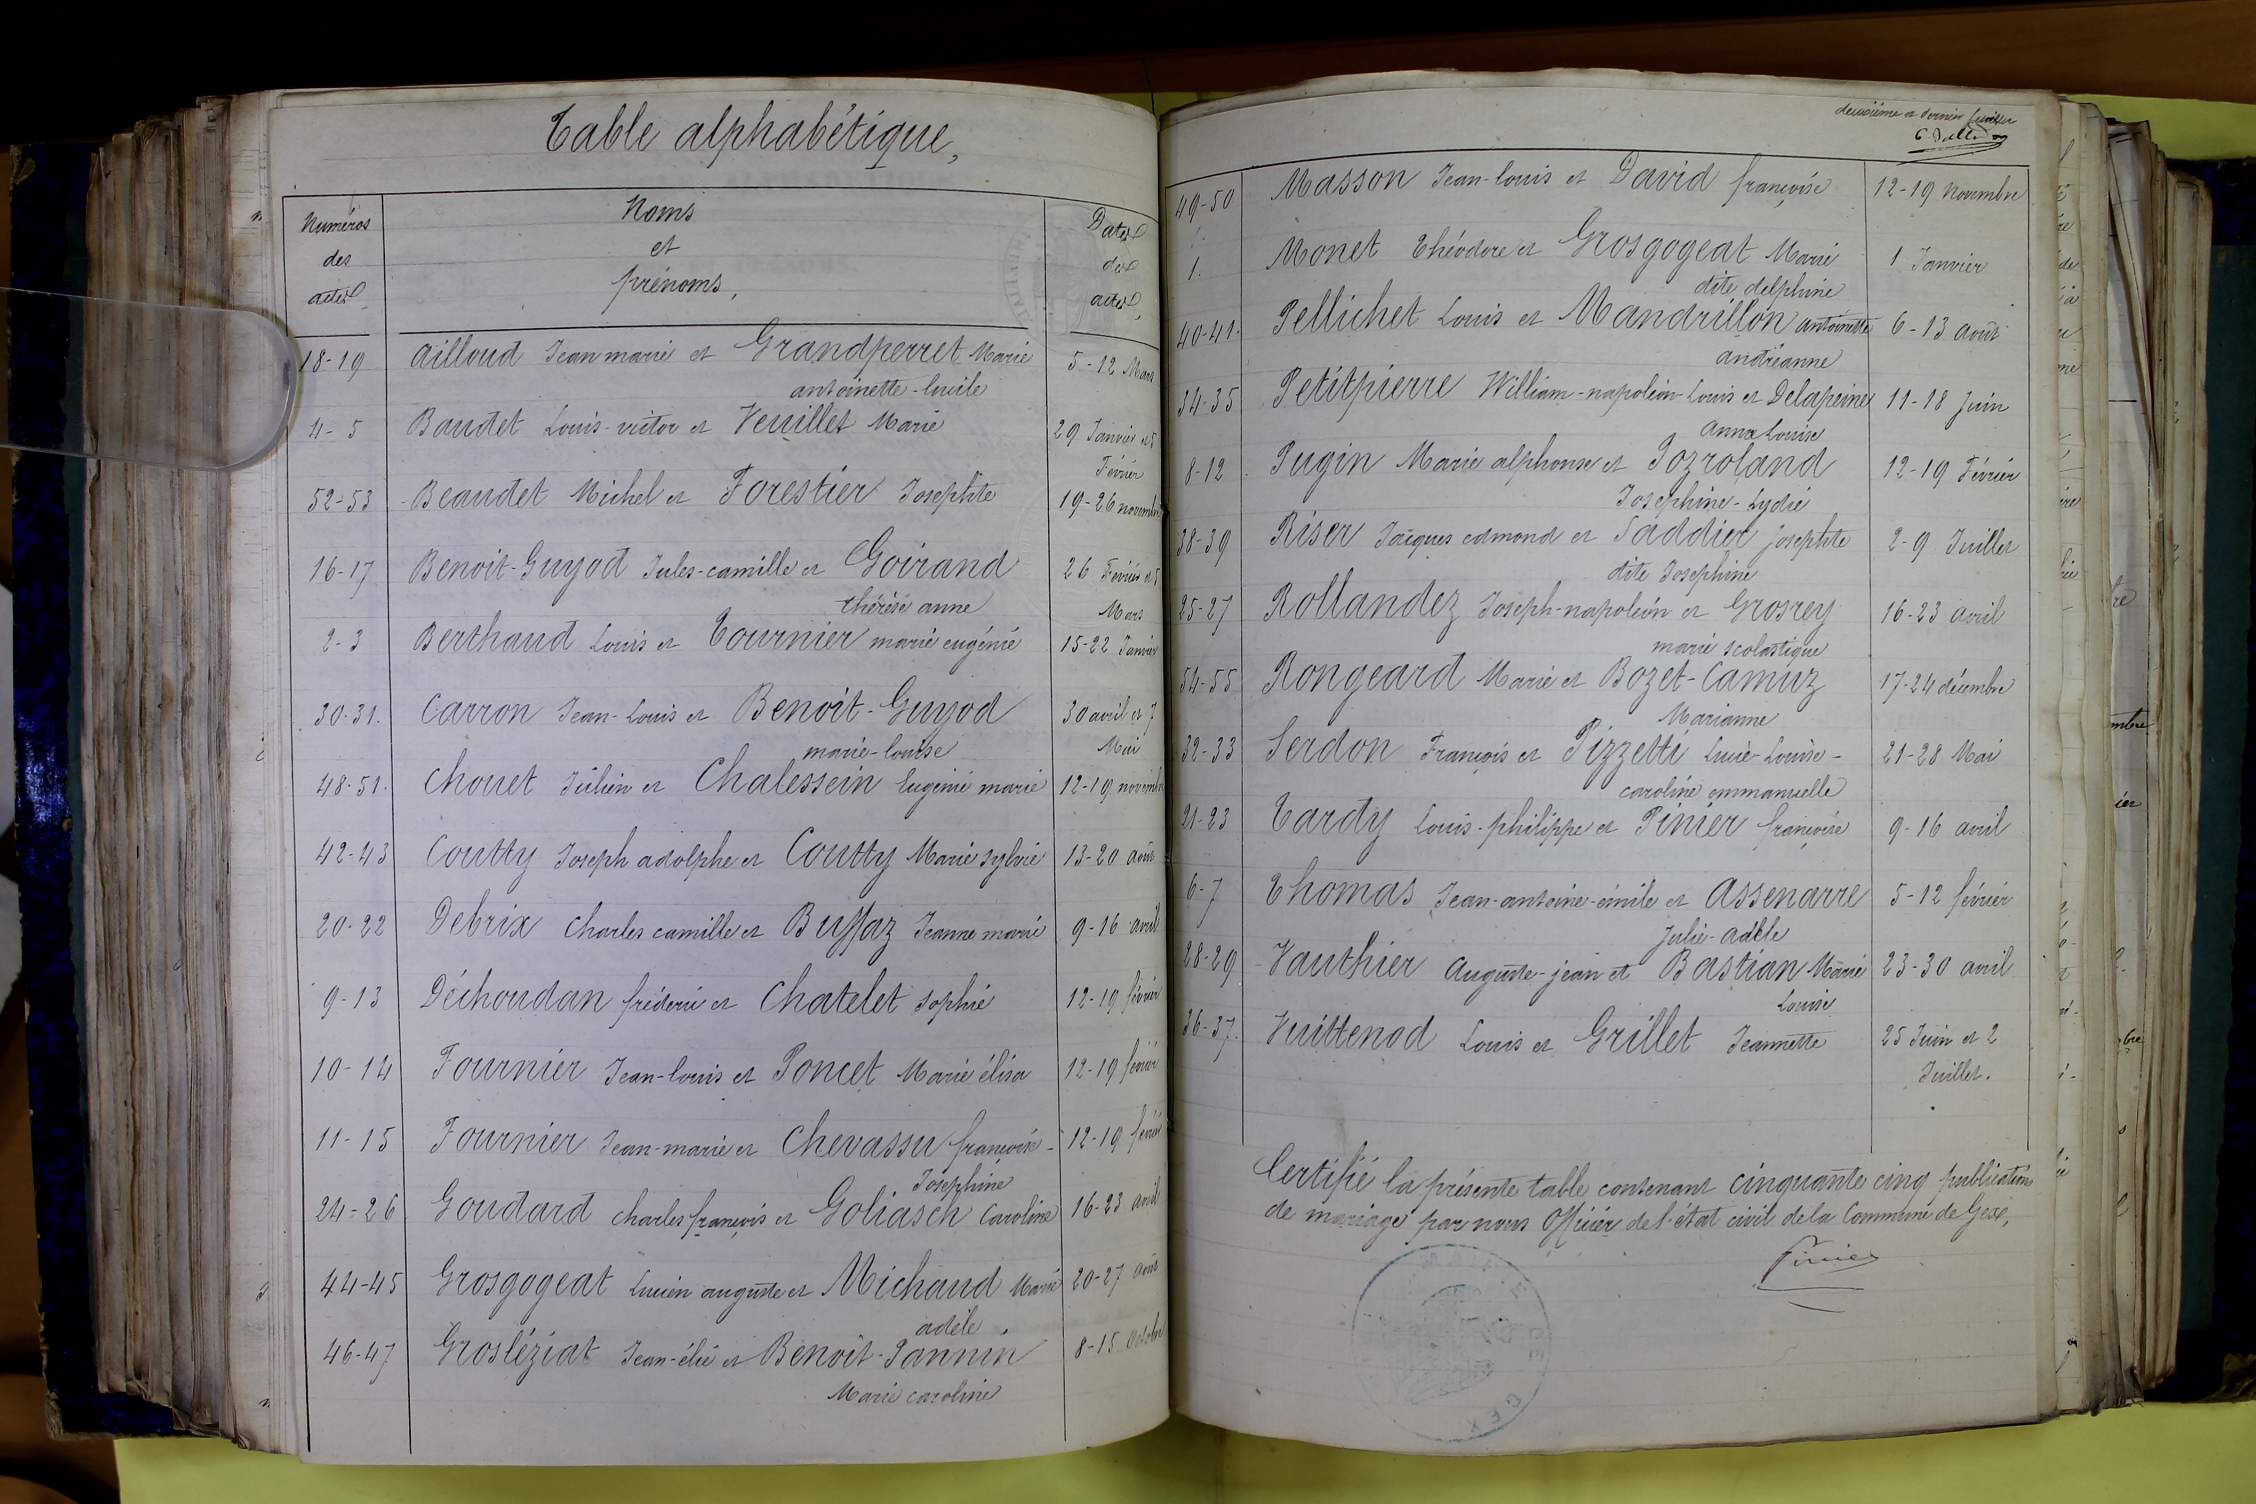 Table alphabétique,
Numéros
des
actes
Noms
et
prénoms,
Dates
des
actes
18-19 Ailloud Jean marie et Grandperret Marie 5-12 Mars
antoinette-lucile
4-5 Baudet Louis-victor et Veuillet Marie 29 Janvier et 5
Février
52-53 Beaudet Michel et Forestier Josephte 19-26 novembre
16-17 Benoit-Guyod Jules-camille et Goirand 26 Février et 5
thérèse anne Mars
2-3 Berthaud Louis et Tournier marie eugénie 15-22 Janvier
30-31. Carron Jean-Louis et Benoit-Guyod 30 avril et 7
marie-louise Mai
48-51. Chouet Julien et Chalessein Eugénie marie 12-19 novembre
42-43 Coutty Joseph adolphe et Coutty Marie sylvie 13-20 août
20-22 Debrix Charles camille et Buffaz Jeanne marie 9-16 avril
9-13 Déchoudan fréderic et Chatelet sophie 12-19 février
10-14 Fournier Jean-louis et Poncet Marie élisa 12-19 février
11-15 Fournier Jean-marie et Chevassu françoise- 12-19 février
Josephine
24-26 Goudard charles françois et Goliasch Caroline 16-23 avril
44-45 Grosgogeat Lucien auguste et Michaud Marie 20-27 août
adèle
46-47 Grosléziat Jean-élie et Benoit-Jannin 8-15 octobre
Marie caroline
deuxième et dernier feuillet
49-50 Masson Jean-louis et David françoise 12-19 Novembre
1. Monet Théodore et Grosgogeat Marie 1 Janvier
dite delphine
40-41. Pellichet Louis et Mandrillon antoinette 6-13 août
andréanne
34-35 Petitpierre William-napoléon-Louis et Delapeine 11-18 Juin
anna Louise
8-12 Pugin Marie alphonse et Pozroland 12-19 Février
Josephine-Lydie
38-39 Riser Jacques edmond et Saddier josephte 2-9 Juillet
dite Josephine
25-27 Rollandez Joseph-napoléon et Grosrey 16-23 avril
marie scolastique
54-55 Rongeard Marie et Bozet-Camuz 17-24 décembre
Marianne
32-33 Serdon François et Pizzetti Lucie-Louise- 21-28 Mai
caroline emmanuelle
21-23 Tardy Louis-philippe et Pinier françoise 9-16 avril
6-7 Thomas Jean-antoine-émile et Assenarre 5-12 février
Julie-adèle
28-29 Vauthier Auguste-jean et Bastian Marie 23-30 avril
Louise
36-37. Vuittenod Louis et Grillet Jeannette 25 Juin et 2
Juillet.
Certifié la présente table contenant cinquante cinq publications
de mariage par nous Officier de l'état civil de la Commune de Gex,